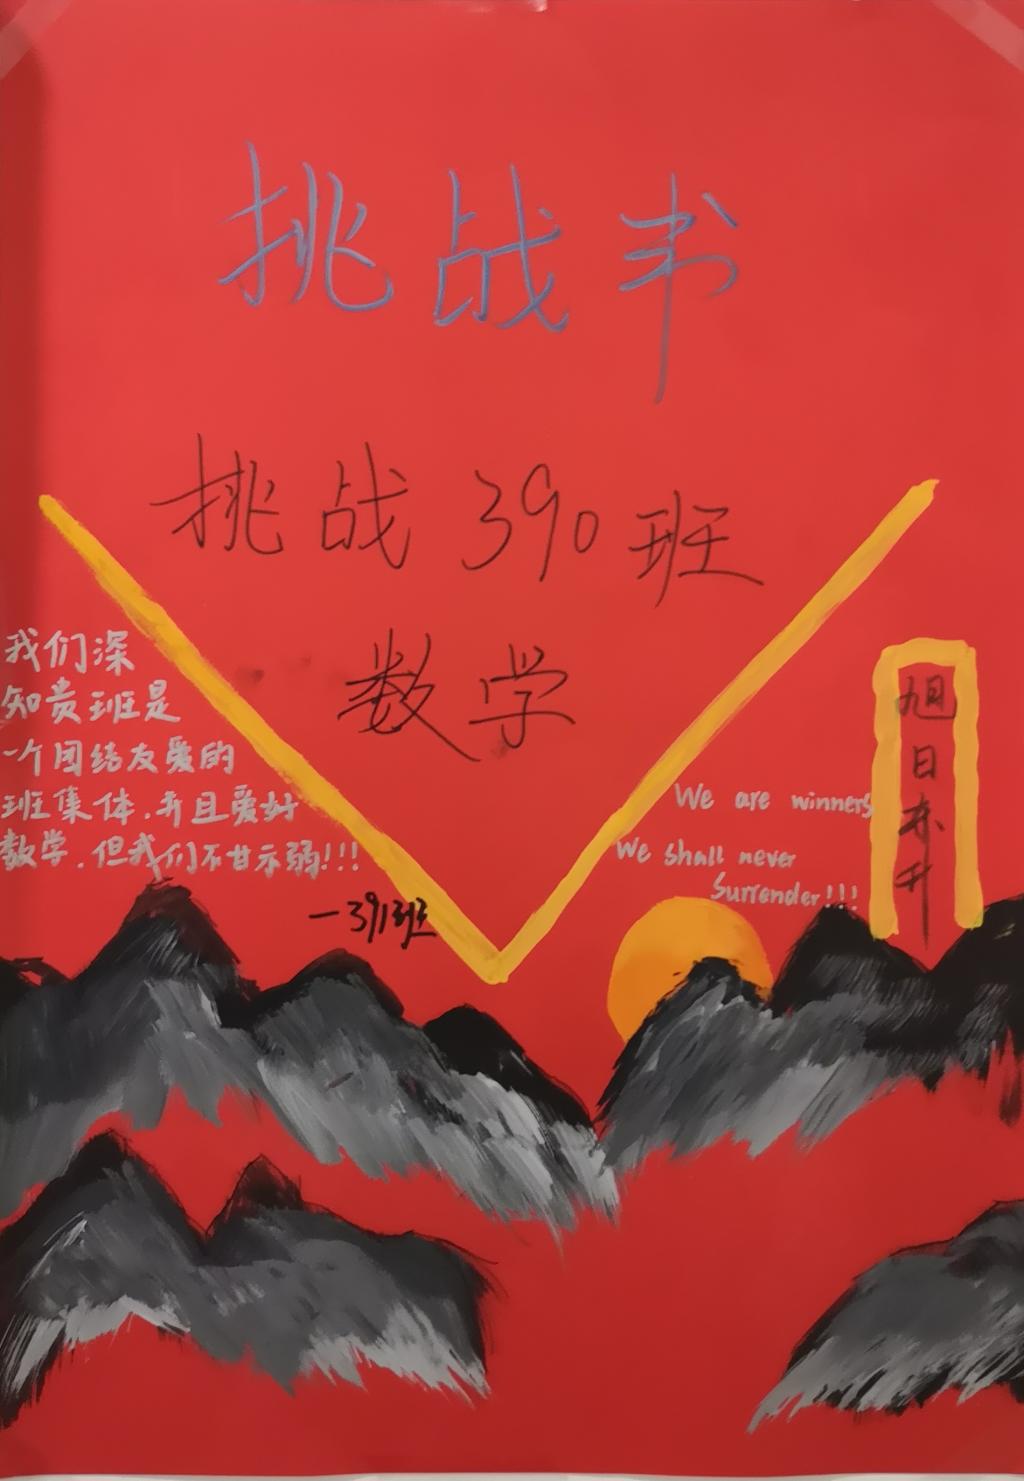 挑战书
挑战390班
数学
我们深
知贵班是
一个团结友爱的
班集体.并且爱好
数学.但我们不甘示弱!!!
—391班
We are winners
We shall never
Surrender!!!
旭日东升